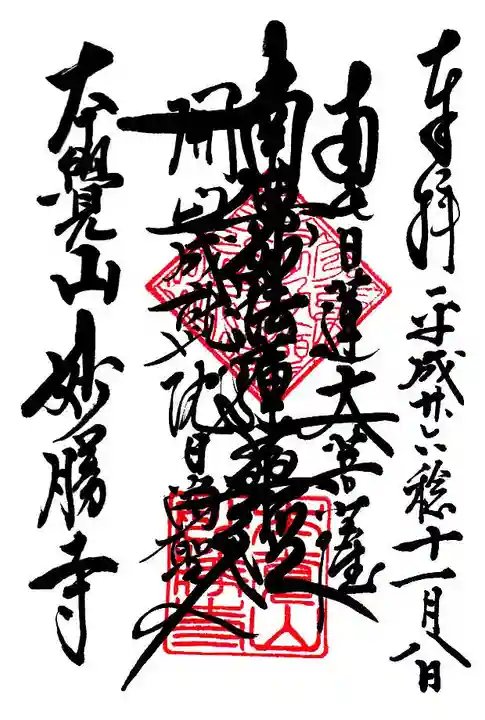 奉拝 平成廿六稔十一月八日
南無日蓮大菩薩
南無妙法蓮華経
開山成就院日海聖人
本覺山妙勝寺